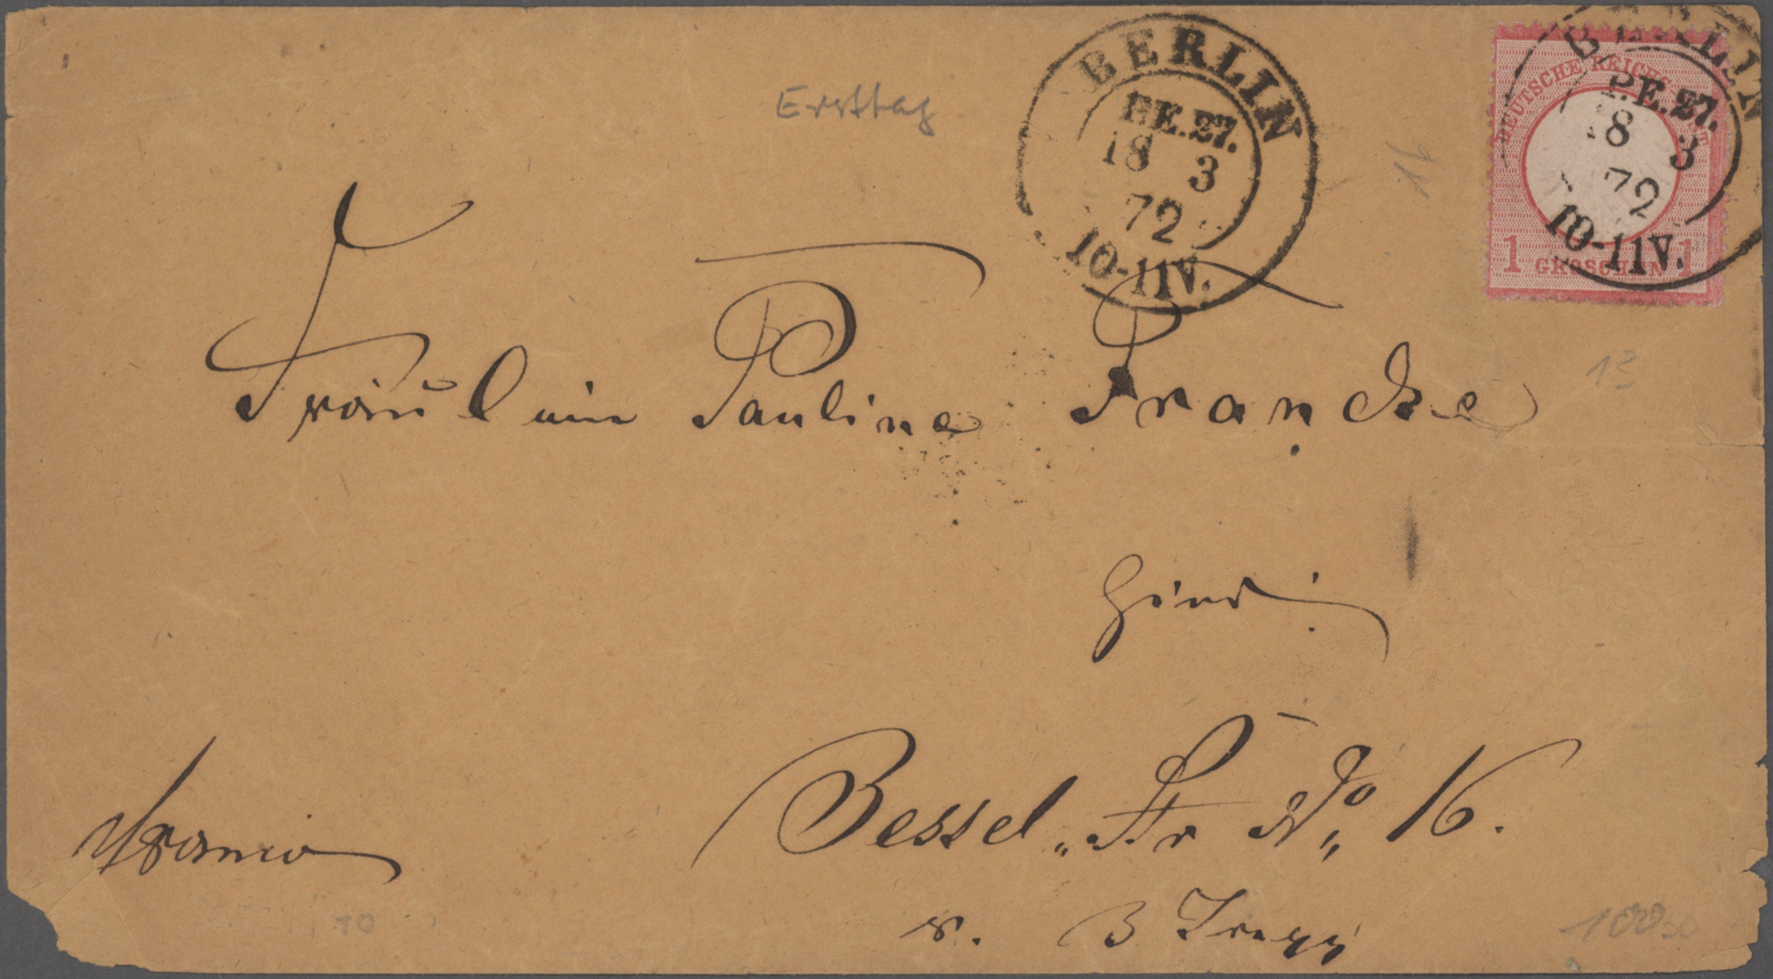 Ersttag
BERLIN
P.E.27.
18 3
72
10-11V.
BERLIN
P.E.27.
18 3
72
10-11V.
DEUTSCHE REICHS POST
1 GROSCHEN 1
16
Fräulein Pauline Francke
13
hier
Bessel„Str No„ 16.
franco
v. 3 Trepp